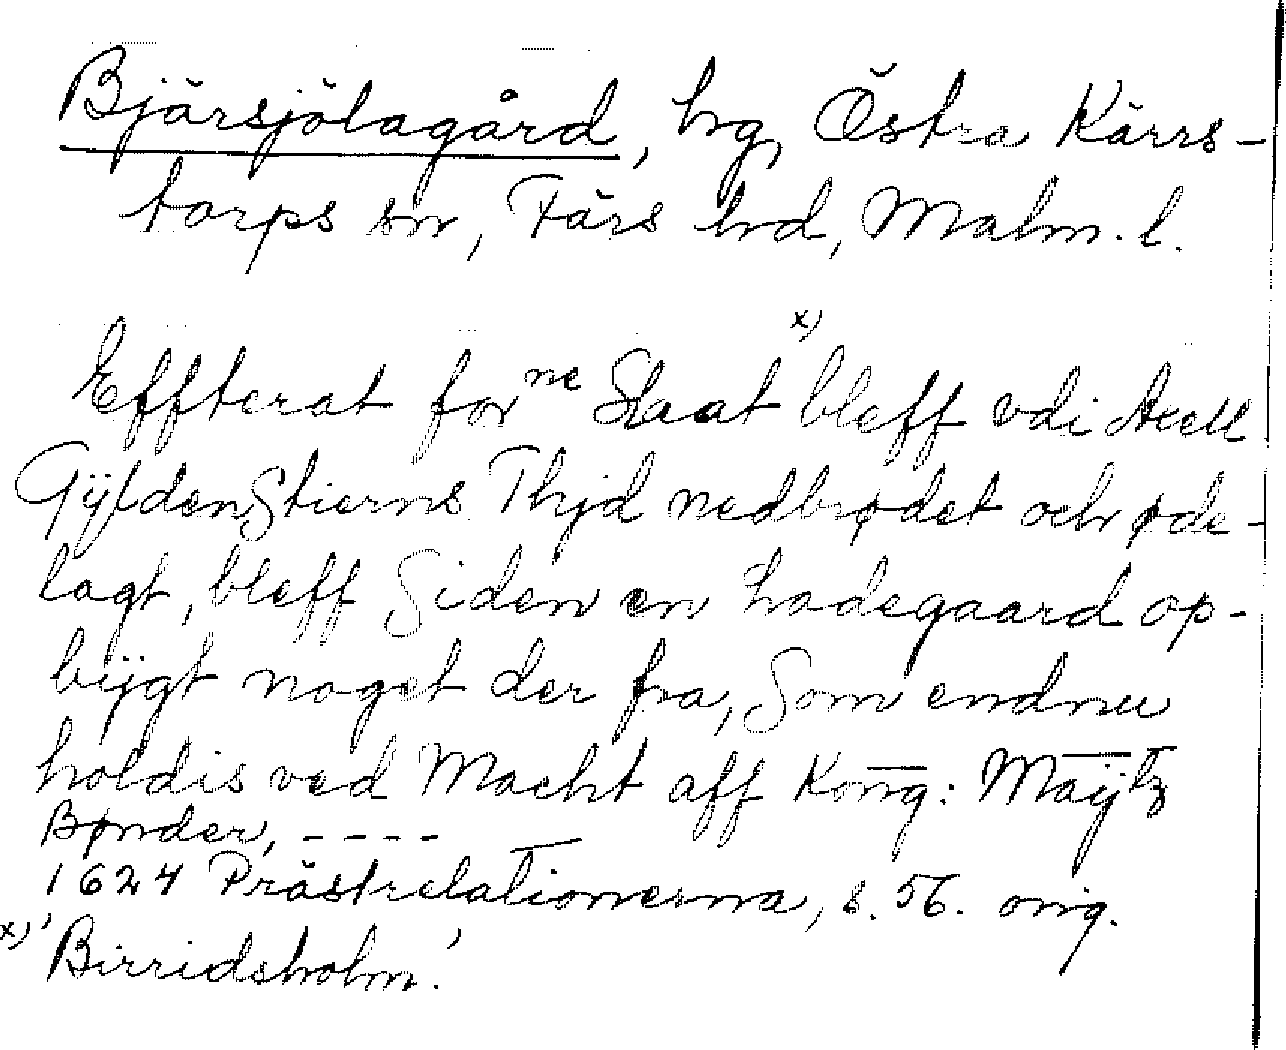 Bjärsjölagård, hrg, Östra Kärrs-
torps sn, Färs hrd, Malm. l.
x)
Effterat forne Slaat bleff vdi Axell
GÿldenStierns Thjd nedbrødet och øde-
lagt, bleff Siden en Ladegaard op-
bÿgt noget der fra, Som endnu
holdis ved Macht aff Kong: Maÿtz
Bønder, - - - -
1624 Prästrelationerna, s. 56. orig.
x) 'Birridsholm.'